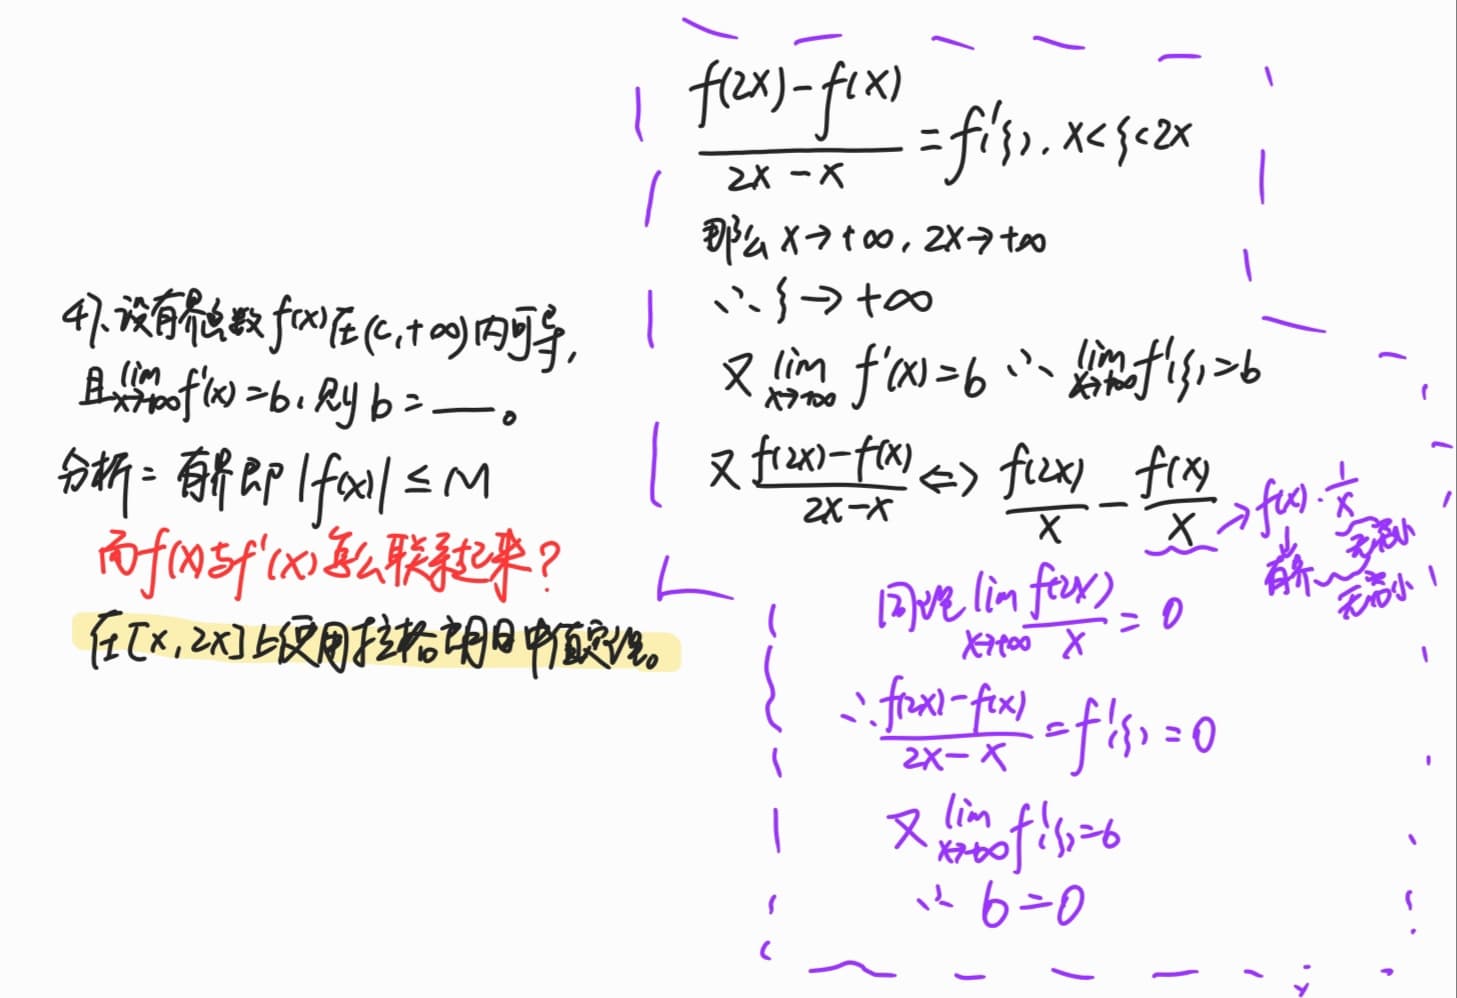 4)、设有界函数f(x)在(c,+∞)内可导,
且lim x→+∞ f'(x)=b,则b=___。
分析=有界即|f(x)|≤M
而f(x)与f'(x)怎么联系起来?
在[x,2x]上使用拉格朗日中值定理。
f(2x)-f(x) / 2x-x =f'(ξ),x<ξ<2x
那么x→+∞,2x→+∞
∴ξ→+∞
又lim x→+∞ f'(x)=b ∴lim x→+∞ f'(ξ)=b
又 f(2x)-f(x) / 2x-x ⇔ f(2x)/x - f(x)/x → f(x)·1/x
有界 无穷小
无穷小
同理lim x→+∞ f(2x)/x =0
∴ f(2x)-f(x) / 2x-x =f'(ξ)=0
又lim x→+∞ f'(ξ)=b
∴b=0